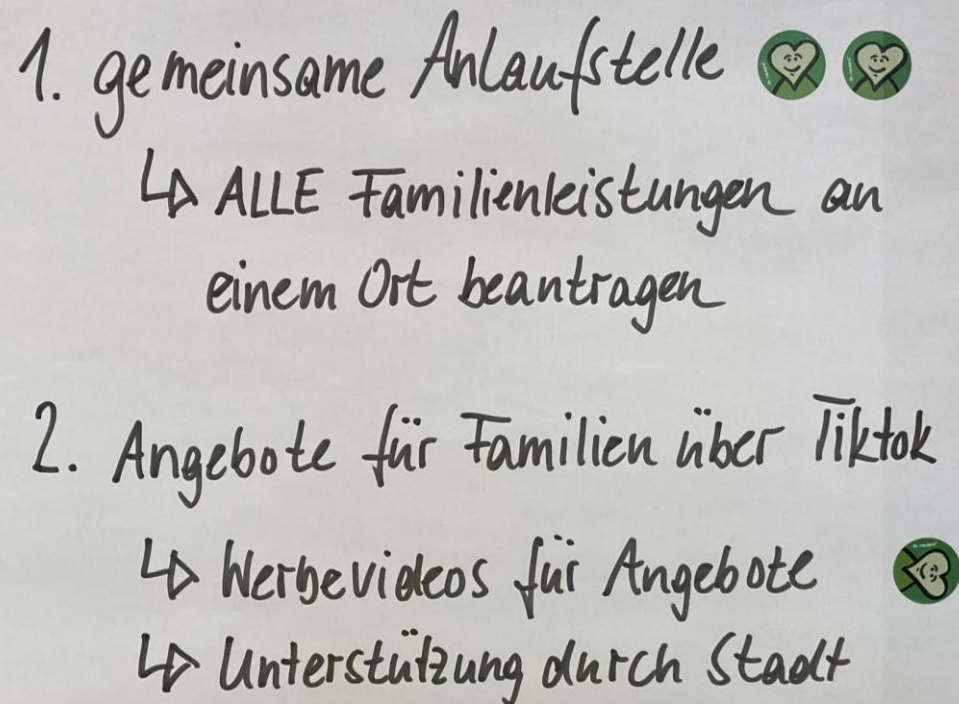 1. gemeinsame Anlaufstelle
↳ ALLE Familienleistungen an
einem Ort beantragen
2. Angebote für Familien über Tiktok
↳ Werbevideos für Angebote
↳ Unterstützung durch Stadt